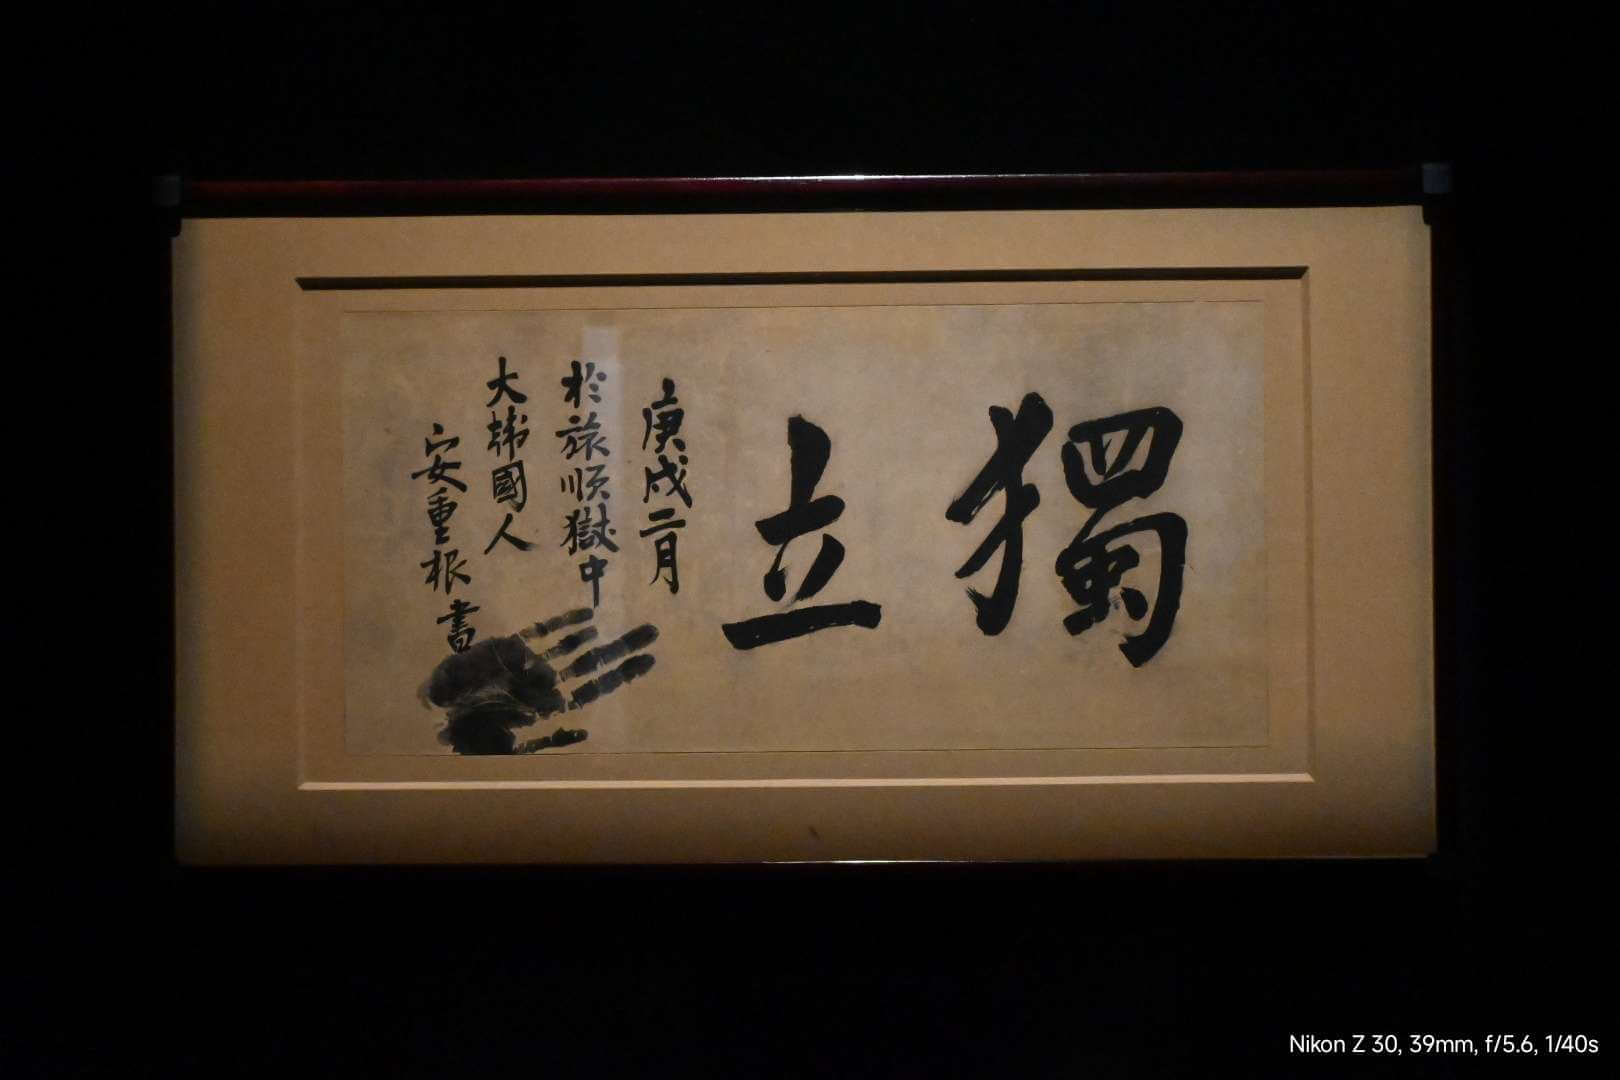 獨立
庚戌二月
於旅順獄中
大韓國人
安重根書
Nikon Z 30, 39mm, f/5.6, 1/40s